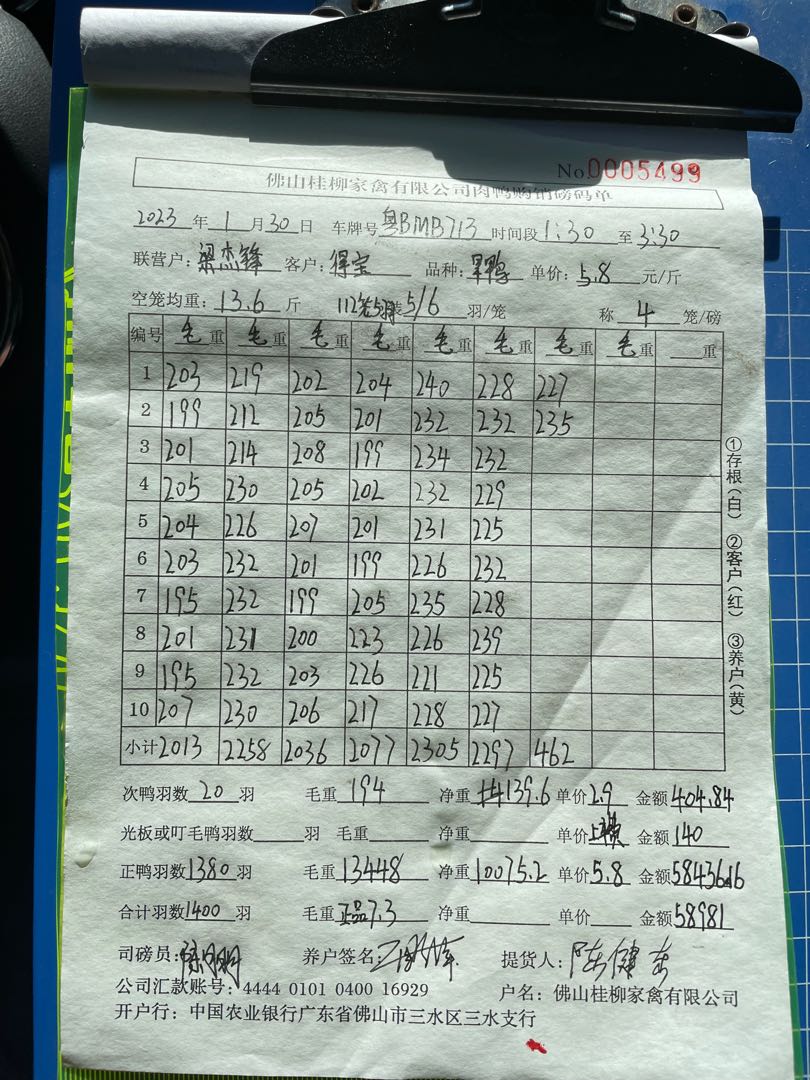 No.0005499
佛山桂柳家禽有限公司肉鸭购销磅码单
2023年1月30日 车牌号粤BMB713时间段1:30至3:30
联营户:梁杰锋 客户:得宝 品种:军鸭 单价:5.8元/斤
空笼均重:13.6斤 112笼5羽装5/6羽/笼 称4笼/磅
编号 毛重 毛重 毛重 毛重 毛重 毛重 毛重 毛重 重
1 203 219 202 204 240 228 227
2 199 212 205 201 232 232 235
3 201 214 208 199 234 232
4 205 230 205 202 232 229
5 204 226 207 201 231 225
6 203 232 201 199 226 232
7 195 232 199 205 235 228
8 201 231 200 223 226 239
9 195 232 203 226 221 225
10 207 230 206 217 228 227
小计 2013 2258 2036 2077 2305 2297 462
①存根(白) ②客户(红) ③养户(黄)
次鸭羽数20羽 毛重194 净重139.6 单价2.9 金额404.84
光板或叮毛鸭羽数 羽 毛重 净重 单价 金额140
正鸭羽数1380羽 毛重13448 净重10075.2 单价5.8 金额58436.16
合计羽数1400羽 毛重正品7.3 净重 单价 金额58981
司磅员: 养户签名: 提货人:陈健
公司汇款账号:4444 0101 0400 16929 户名:佛山桂柳家禽有限公司
开户行:中国农业银行广东省佛山市三水区三水支行